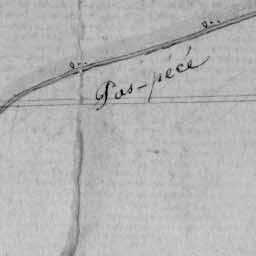 Pas-pécé